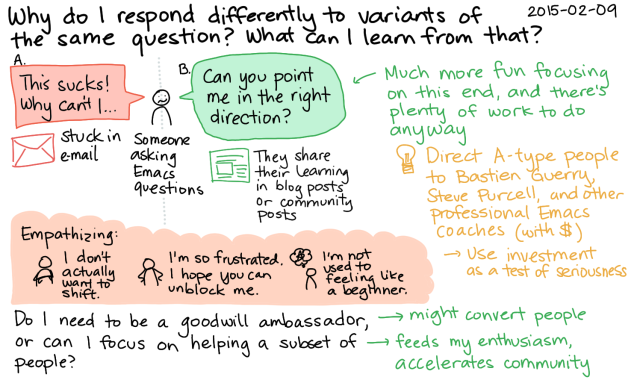 Why do I respond differently to variants of
the same question? What can I learn from that?
2015-02-09
A.
This sucks!
Why can't I...
stuck in
e-mail
Someone
asking
Emacs
questions
B.
Can you point
me in the right
direction?
They share
their learning
in blog posts
or community
posts
Much more fun focusing
on this end, and there's
plenty of work to do
anyway
Direct A-type people
to Bastien Guerry,
Steve Purcell, and other
professional Emacs
coaches (with $)
→ Use investment
as a test of seriousness
Empathizing:
I don't
actually
want to
shift.
I'm so frustrated.
I hope you can
unblock me.
I'm not
used to
feeling like
a beginner.
Do I need to be a goodwill ambassador,
or can I focus on helping a subset of
people?
→ might convert people
→ feeds my enthusiasm,
accelerates community